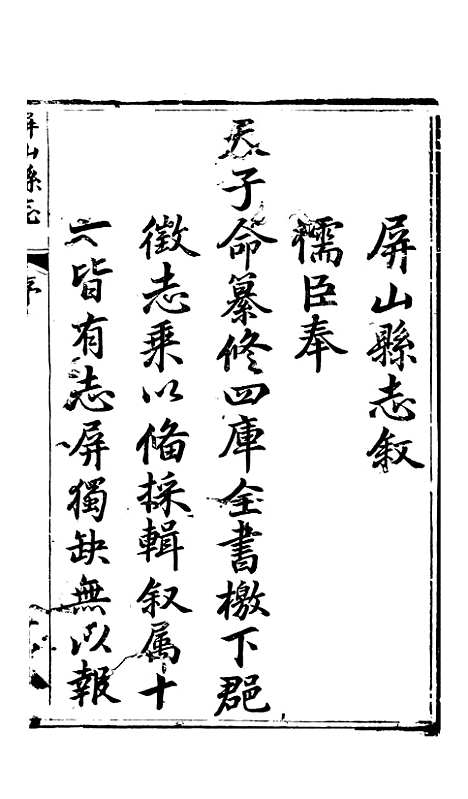 屏山縣志叙
儒臣奉
天子命纂修四庫全書檄下郡
徵志乘以備採輯叙属十
一皆有志屏獨缺無以報
屏山縣志
序